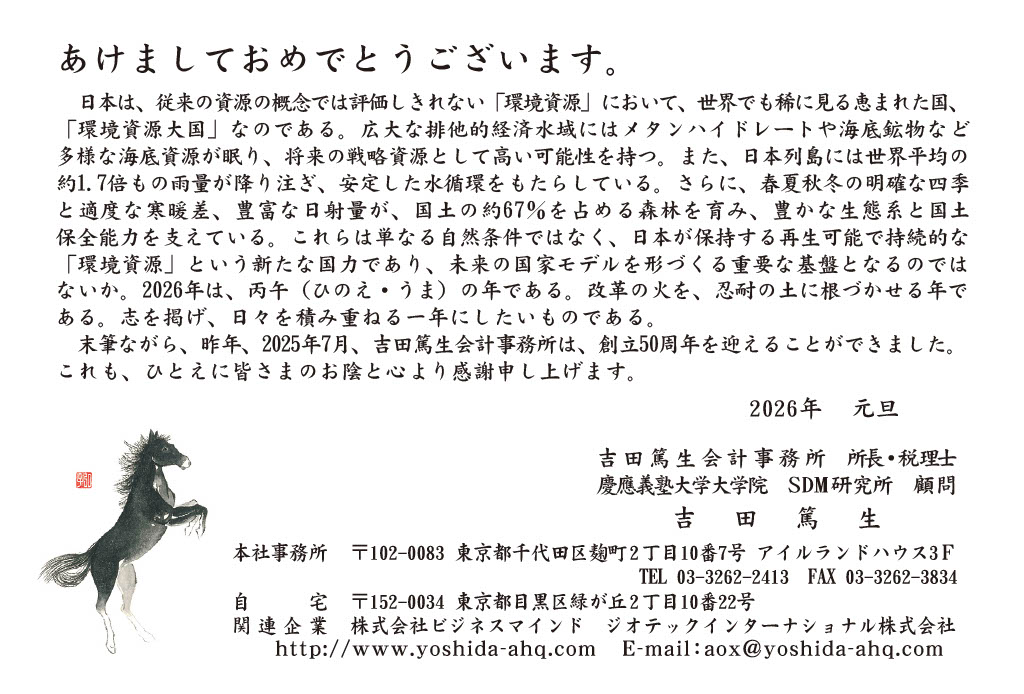 あけましておめでとうございます。
日本は、従来の資源の概念では評価しきれない「環境資源」において、世界でも稀に見る恵まれた国、
「環境資源大国」なのである。広大な排他的経済水域にはメタンハイドレートや海底鉱物など
多様な海底資源が眠り、将来の戦略資源として高い可能性を持つ。また、日本列島には世界平均の
約1.7倍もの雨量が降り注ぎ、安定した水循環をもたらしている。さらに、春夏秋冬の明確な四季
と適度な寒暖差、豊富な日射量が、国土の約67％を占める森林を育み、豊かな生態系と国土
保全能力を支えている。これらは単なる自然条件ではなく、日本が保持する再生可能で持続的な
「環境資源」という新たな国力であり、未来の国家モデルを形づくる重要な基盤となるのでは
ないか。2026年は、丙午（ひのえ・うま）の年である。改革の火を、忍耐の土に根づかせる年で
ある。志を掲げ、日々を積み重ねる一年にしたいものである。
末筆ながら、昨年、2025年7月、吉田篤生会計事務所は、創立50周年を迎えることができました。
これも、ひとえに皆さまのお陰と心より感謝申し上げます。
2026年　元旦
吉田篤生会計事務所　所長・税理士
慶應義塾大学大学院　SDM研究所　顧問
吉　田　篤　生
本社事務所　〒102-0083 東京都千代田区麹町２丁目10番7号 アイルランドハウス3Ｆ
TEL 03-3262-2413　FAX 03-3262-3834
自　宅　〒152-0034 東京都目黒区緑が丘２丁目10番22号
関連企業　株式会社ビジネスマインド　ジオテックインターナショナル株式会社
http://www.yoshida-ahq.com　E-mail:aox@yoshida-ahq.com